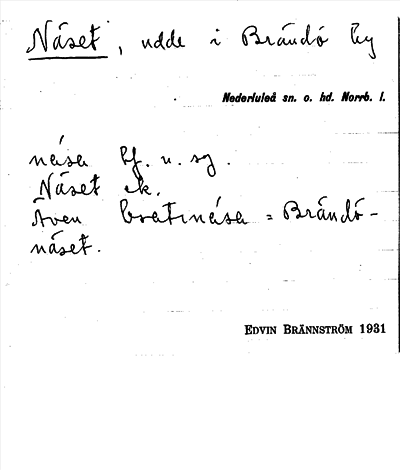 Näset, udde i Brändö by
Nederluleå sn. o. hd. Norrb. l.
näsa bf. n. sg.
Näset ek.
Även bratnäsa = Brändö-
näset.
EDVIN BRÄNNSTRÖM 1931